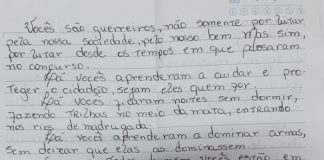 Vocês são guerreiros, não somente por lutar
pela nossa sociedade, pelo nosso bem mas sim,
por lutar desde os tempos em que passaram
no concurso.
Lá vocês aprenderam a cuidar e pro-
teger o cidadão, sejam eles quem for.
Lá vocês ficaram noites sem dormir,
fazendo trilhas no meio da mata, entrando
nos rios de madrugada;
Lá vocês aprenderam a dominar armas,
sem deixar que elas os dominassem.
vocês estão em